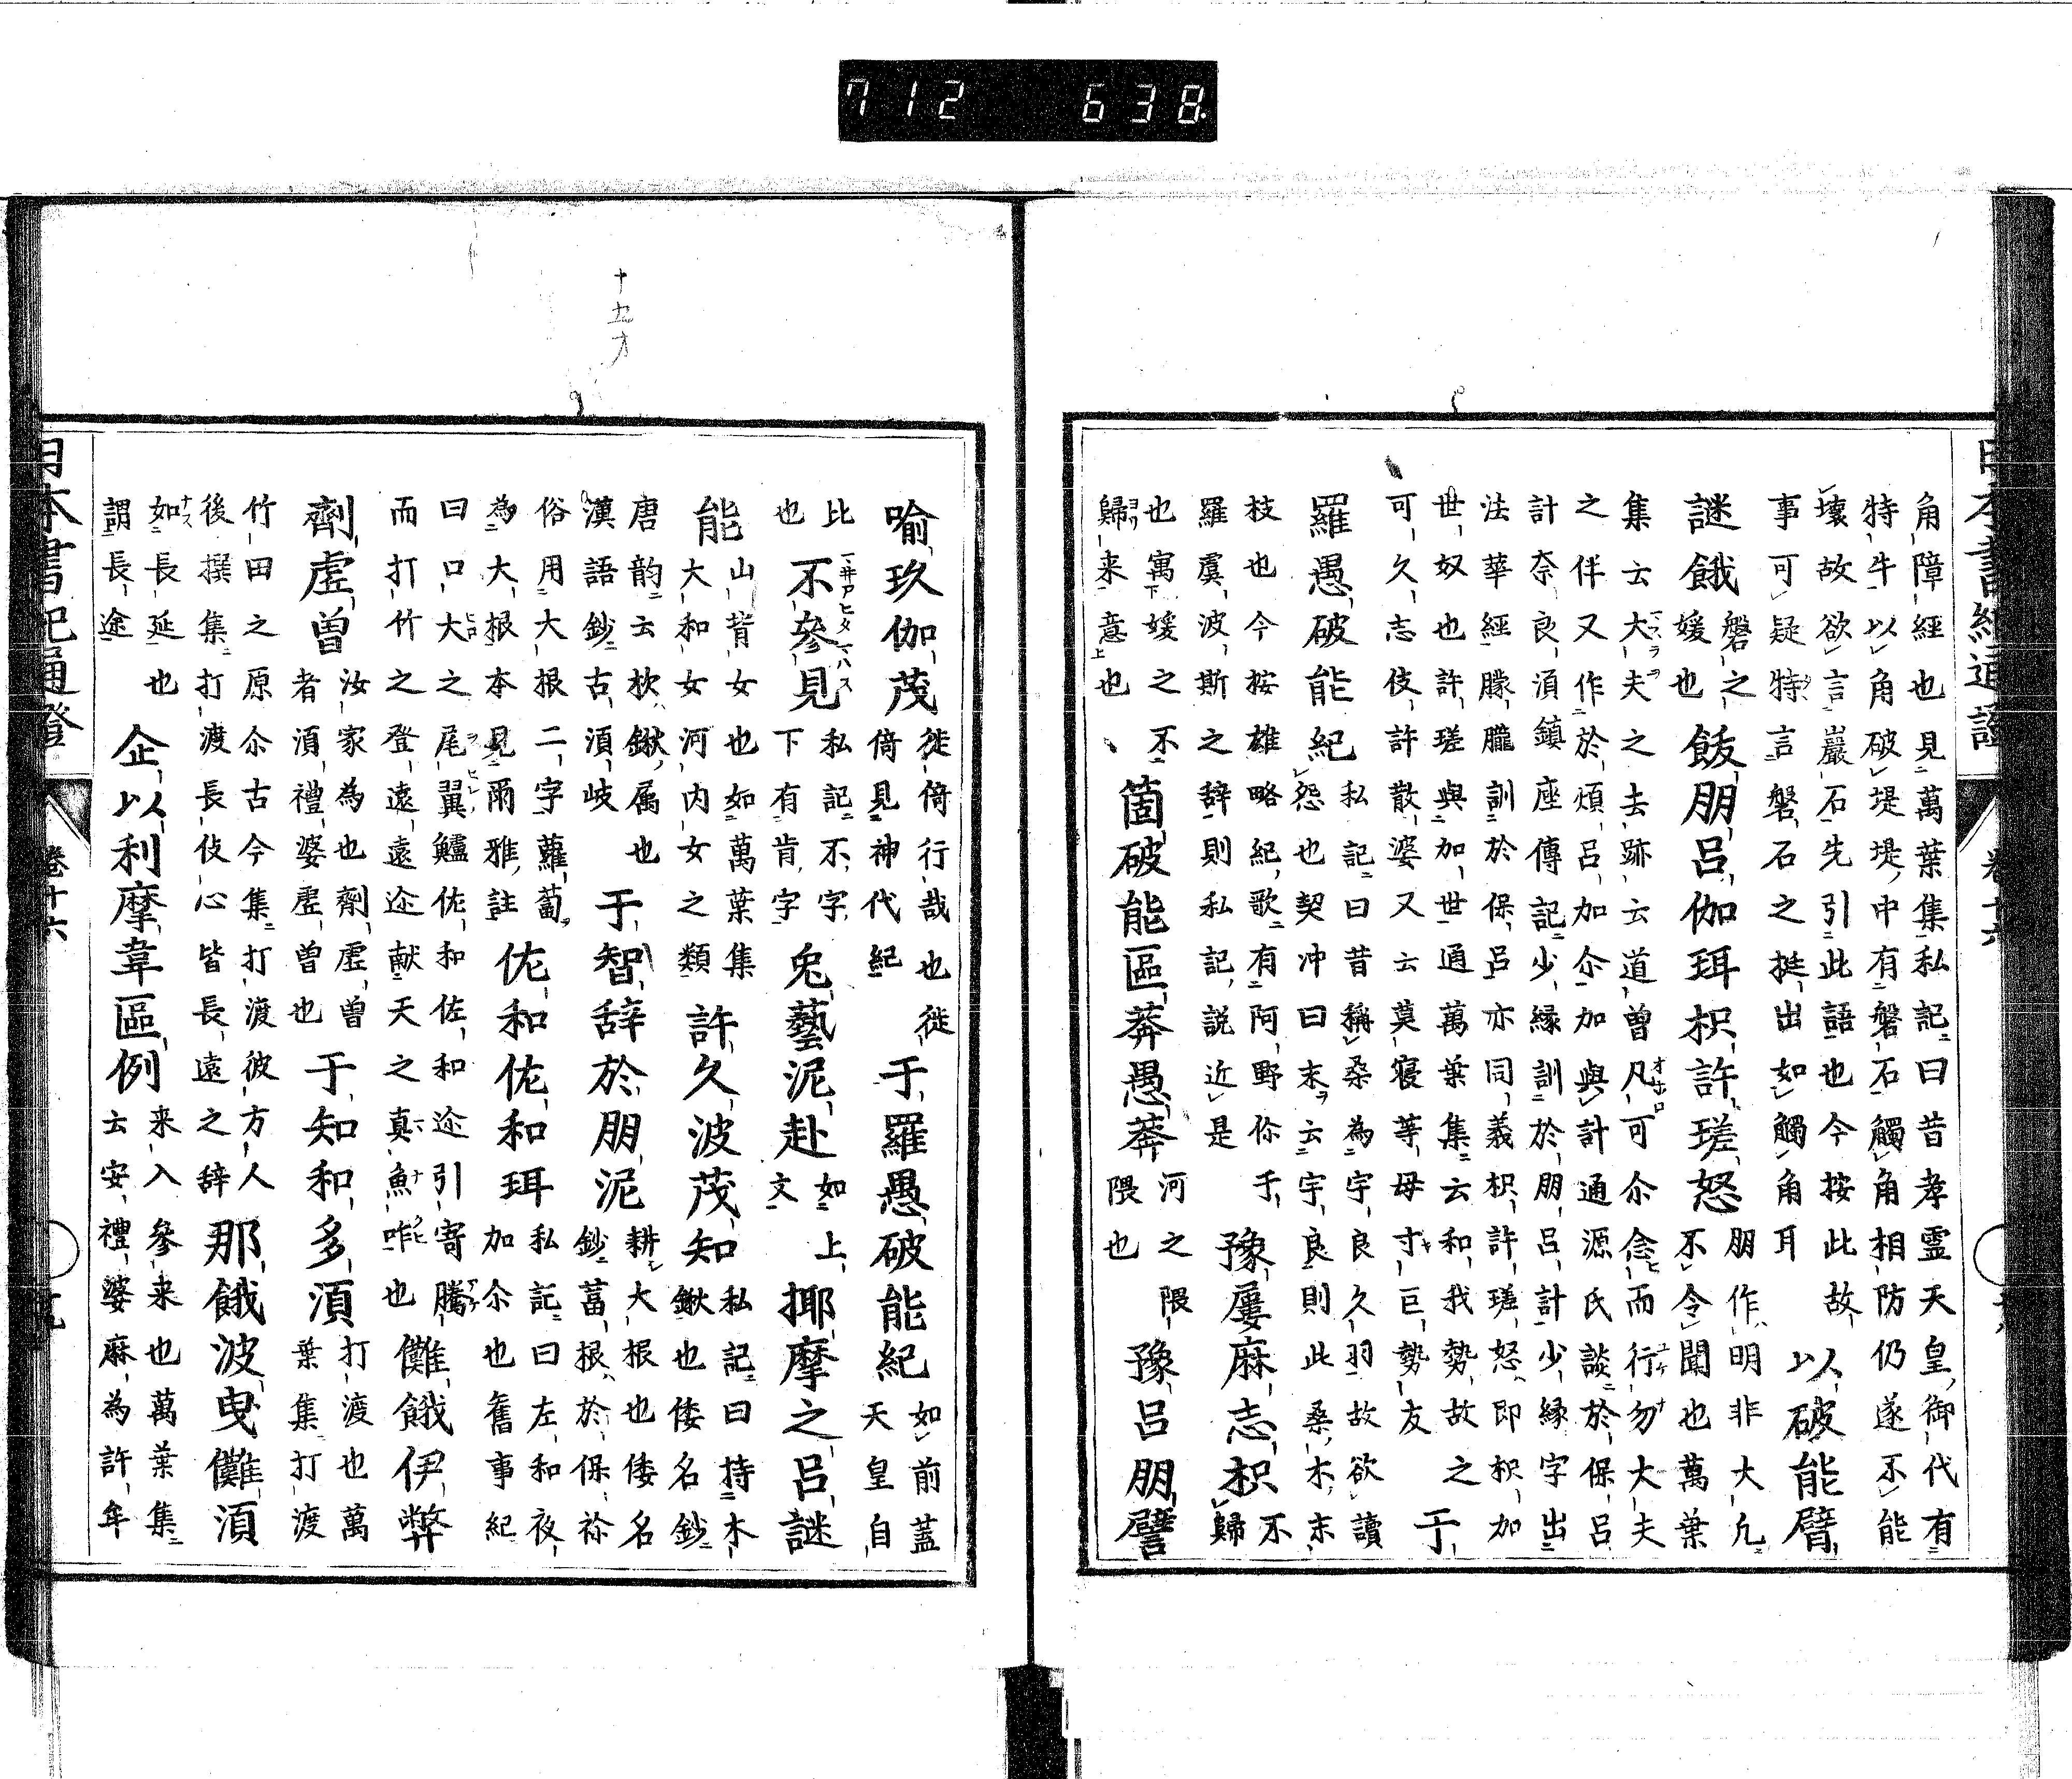 712 638
角障經也見萬葉集私記曰昔孝霊天皇御代有
特牛以角破堤堤中有磐石觸角相防仍遂不能
壊故欲言巖石先引此語也今按此故
事可疑特言磐石之挺出如觸角耳
以破能臂
謎餓
磐之
媛也
皽朋呂伽珥枳許瑳怒
朋作明非大凡
不令聞也萬葉
集云大夫之去跡云道曾凡可尒念而行勿大夫
之伴又作於煩呂加尒加與計通源氏談於保呂
計奈良湏鎮座傳記少縁訓於朋呂計少縁字出
法華經朦朧訓於保呂亦同義枳許瑳怒即枳加
世奴也許瑳與加世通萬葉集云和我勢故之
可久志伎許散婆又云莫寝等母寸巨勢友
于
羅愚破能紀
私記曰昔稱桑為宇良久羽故欲讀
怨也契冲曰末云宇良則此桑木末
枝也今按雄略紀歌有阿野你于
羅虞波斯之辞則私記説近是
豫屢麻志枳
不
歸
也寓媛之不
歸来意也
箇破能區莽愚莽
河之隈
隈也
豫呂朋譬
喩玖伽茂
徙倚行哉也徙
倚見神代紀
于羅愚破能紀
如前蓋
天皇自
比
也
不參見
私記不字
下有肯字
兎藝泥赴
如上
文
揶摩之呂謎
能
山背女也如萬葉集
大和女河内女之類
許久波茂知
私記曰持木
鍬也倭名鈔
唐韵云杴鍬属也
漢語鈔古湏岐
于智辞於朋泥
耕大根也倭名
鈔葍根於保祢
俗用大根二字蘿蔔
為大根本見爾雅註
佐和佐和珥
私記曰左和夜
加尒也舊事紀
曰口大之尾翼鱸佐和佐和迩引寄騰
而打竹之登遠遠迩献天之真魚咋也
儺餓伊弊
劑虚曾
汝家為也劑虚曾
者湏禮婆虚曾也
于知和多湏
打渡也萬
葉集打渡
竹田之原尒古今集打渡彼方人
後撰集打渡長伎心皆長遠之辞
那餓波曳儺湏
如長延也
謂長途
企以利摩韋區例
来入參来也萬葉集
云安禮婆麻為許年
日本書紀通證
卷十六